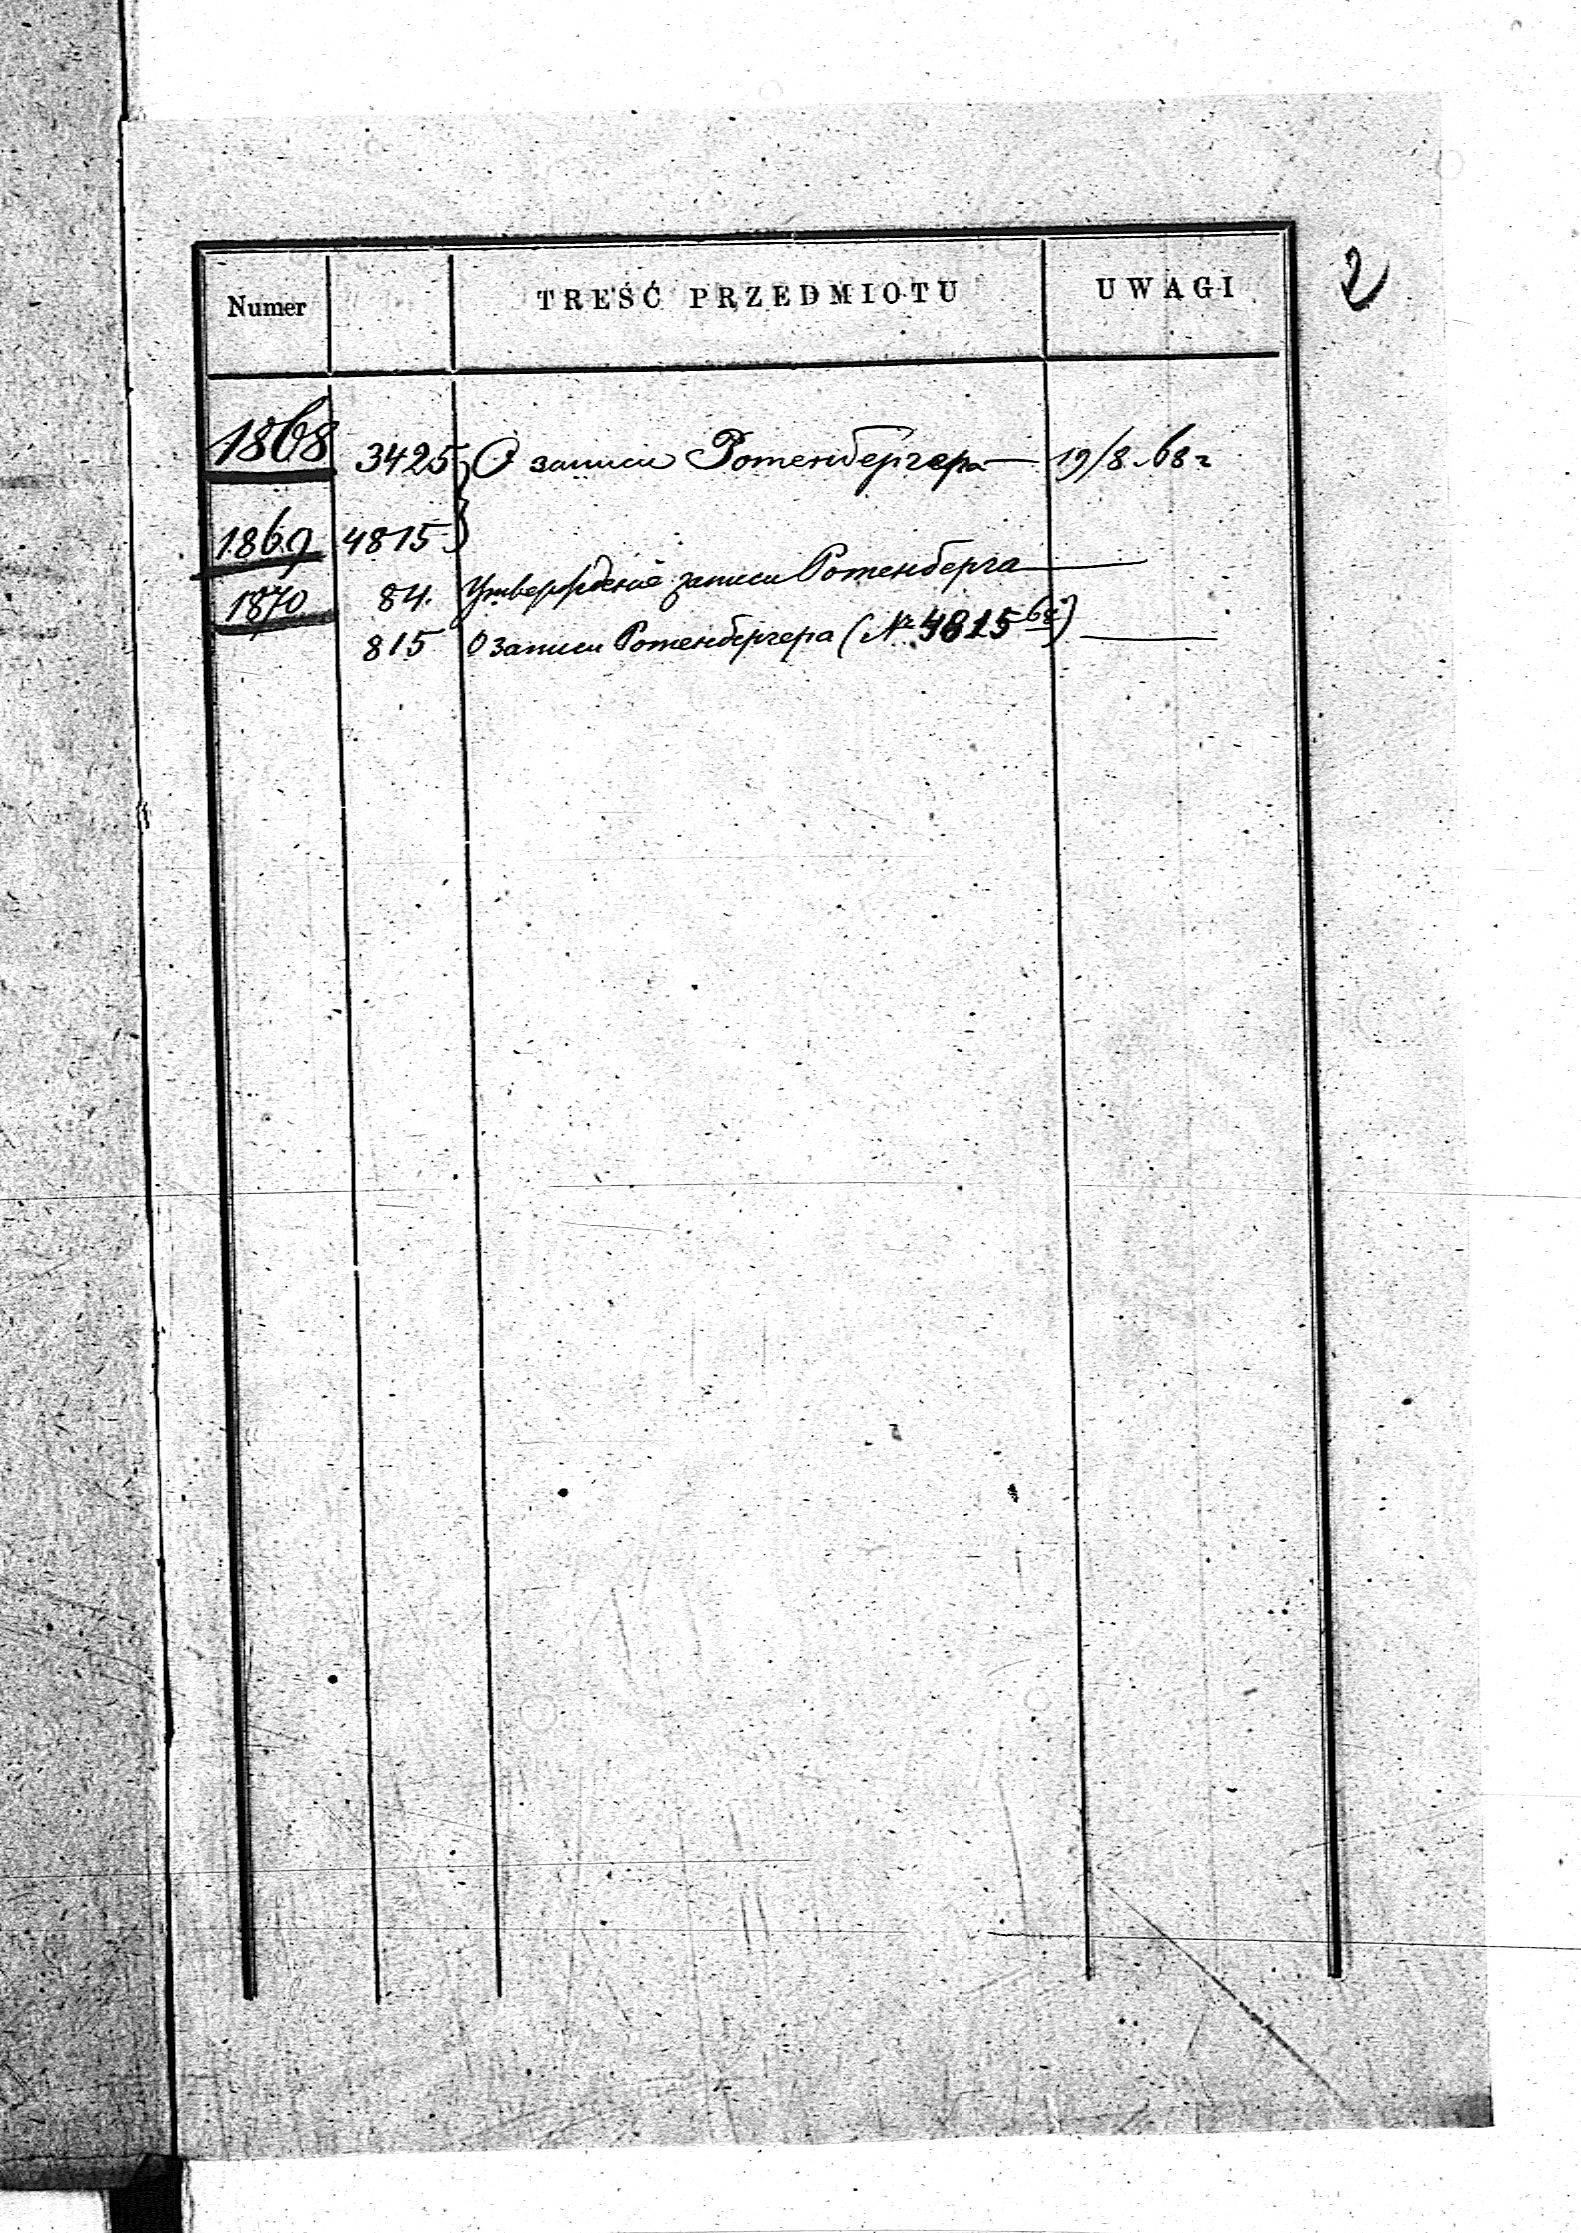 2
Numer TREŚĆ PRZEDMIOTU UWAGI
1868 3425 О записи Ротенбергера 19/8 68 г
1869 4815
1870 84. Утверждение записи Ротенберга
815 О записи Ротенбергера (№ 4815 68)